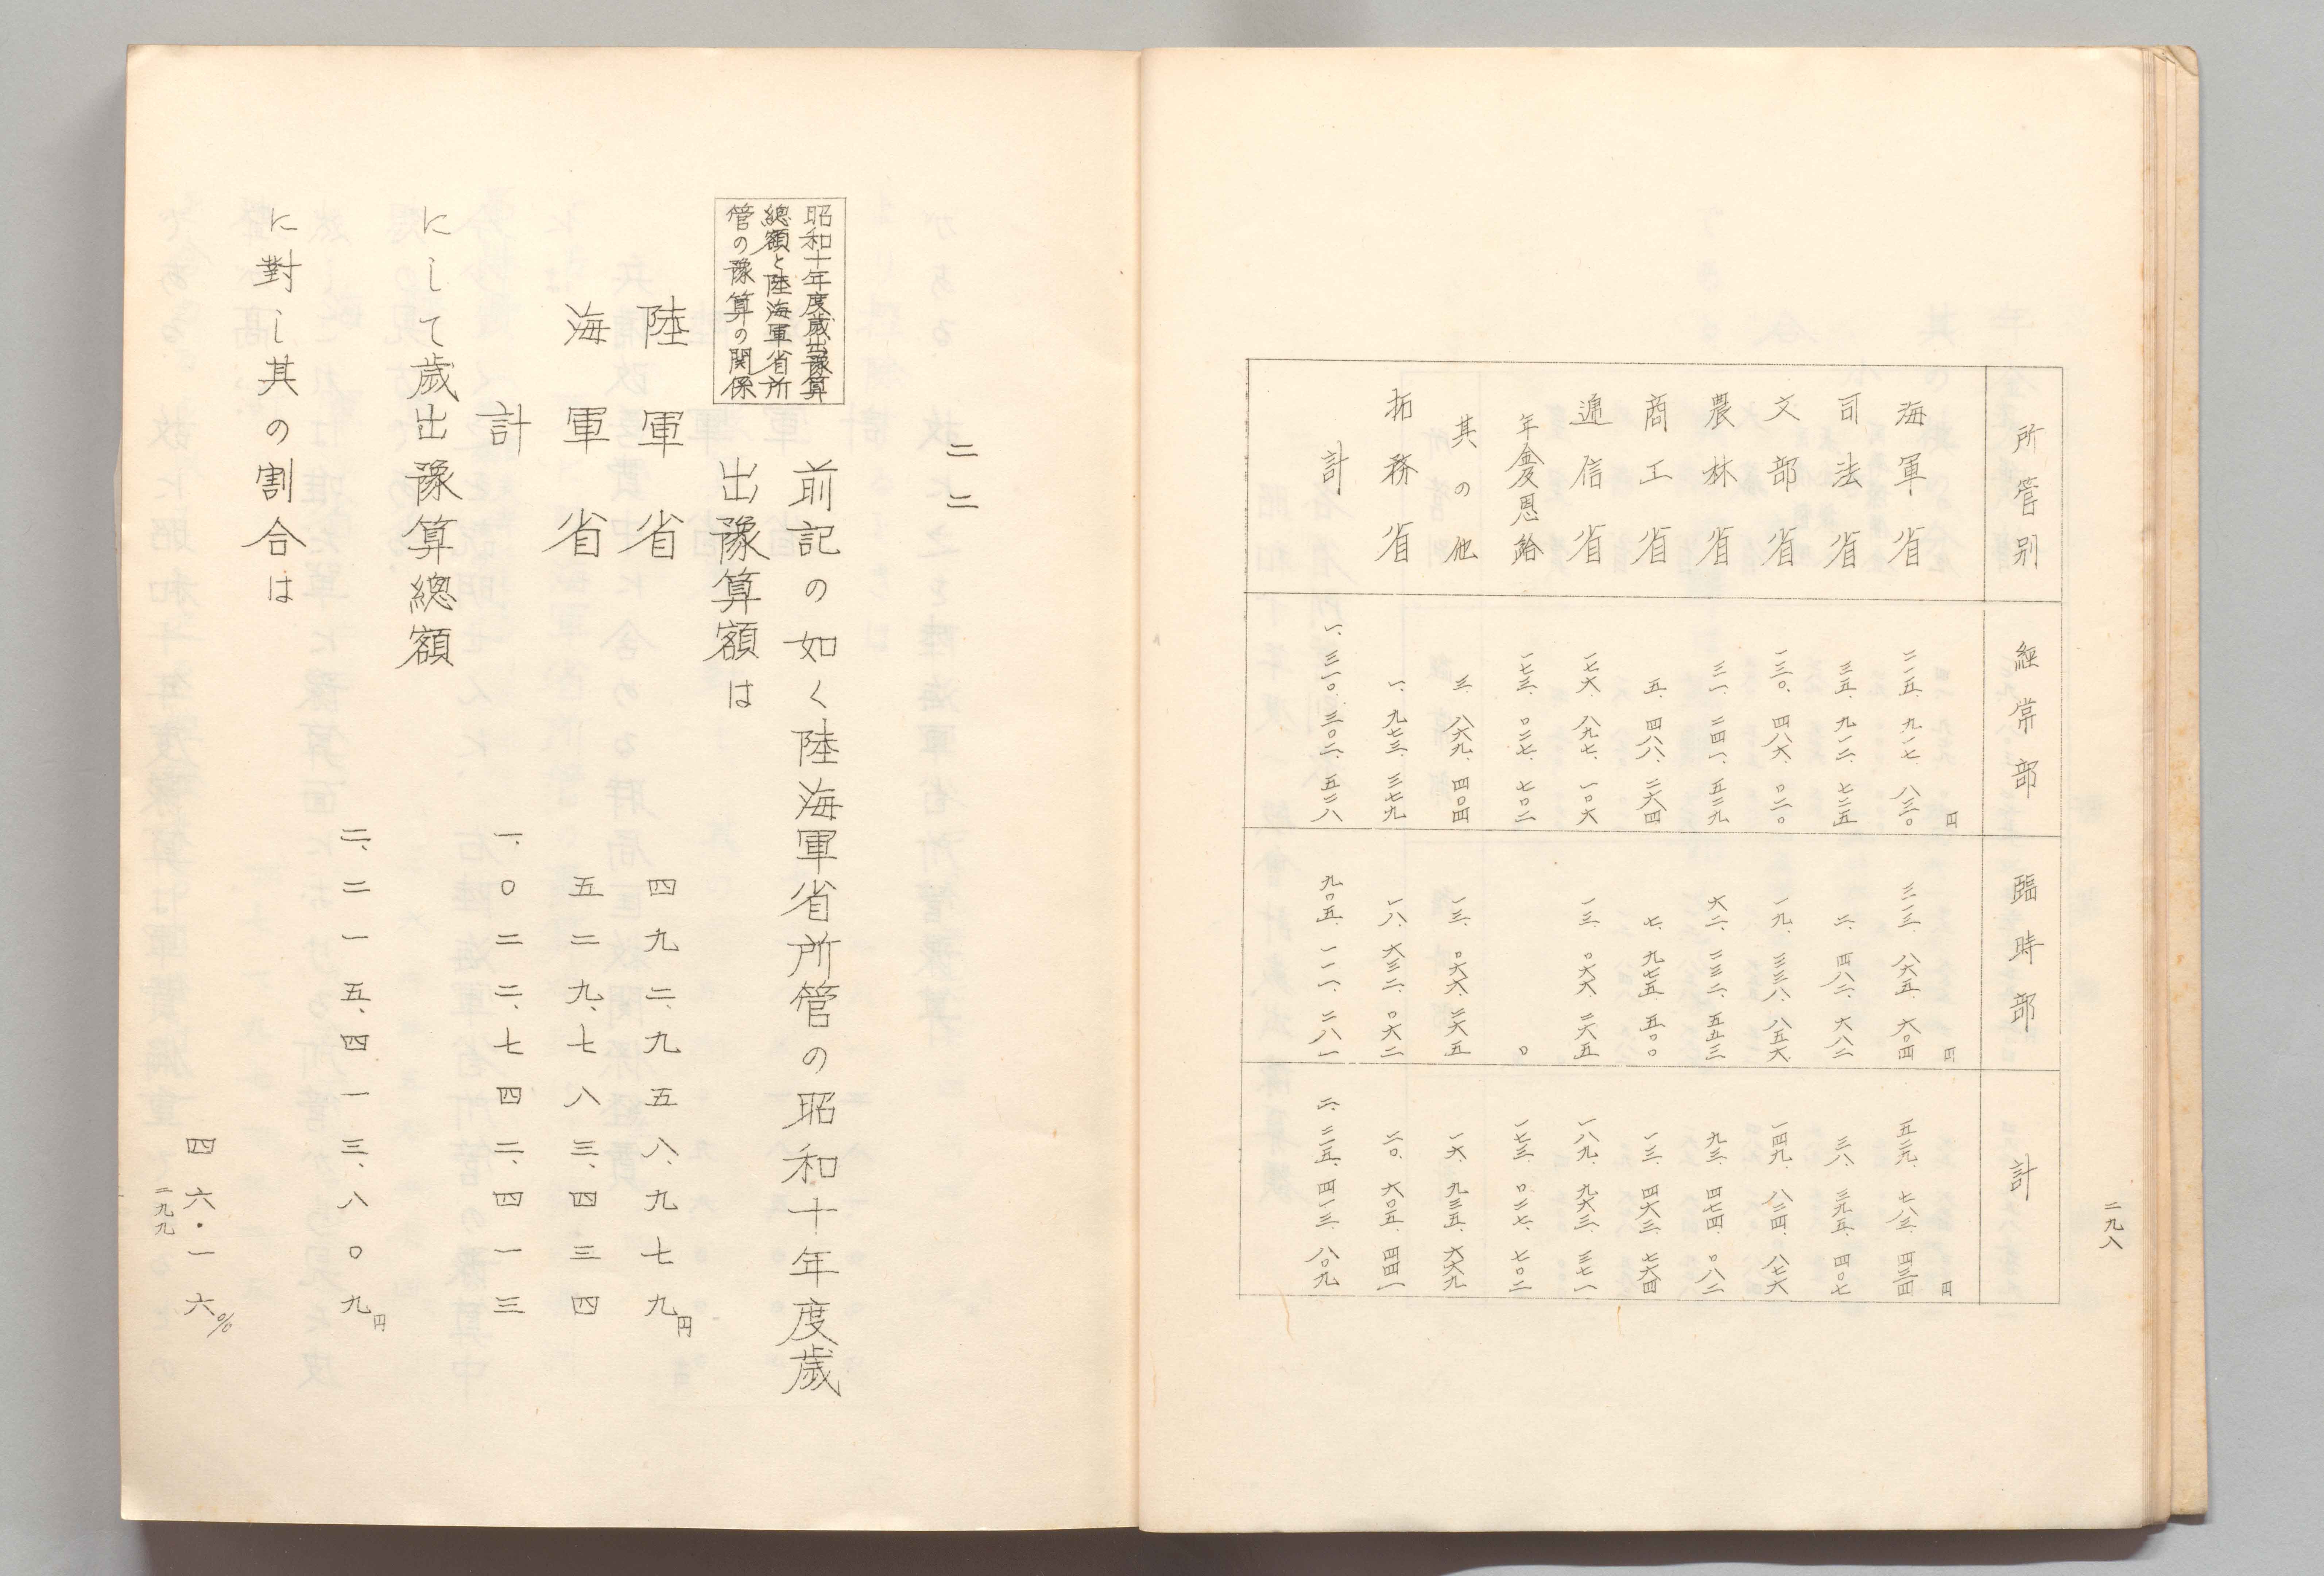 二九八
所管別 經常部 臨時部 計
円 円 円
海軍省 二一五、九一七、八三〇 三一三、八六五、六〇四 五二九、七八三、四三四
司法省 三五、九一二、七二五 二、四八二、六八二 三八、三九五、四〇七
文部省 一三〇、四八六、〇二〇 一九、三三八、八五六 一四九、八二四、八七六
農林省 三一、二四一、五二九 六二、二三二、五五三 九三、四七四、〇八二
商工省 五、四八八、二六四 七、九七五、五〇〇 一三、四六三、七六四
遞信省 一七六、八九七、一〇六 一三、〇六六、二六五 一八九、九六三、三七一
年金及恩給 一七三、〇二七、七〇二 〇 一七三、〇二七、七〇二
其の他 三、八六九、四〇四 一三、〇六六、二六五 一六、九三五、六六九
拓務省 一、九七三、三七九 一八、六三二、〇六二 二〇、六〇五、四四一
計 一、三一〇、三〇二、五二八 九〇五、一一一、二八一 二、二一五、四一三、八〇九
二二
昭和十年度歲出豫算
總額と陸海軍省所
管の豫算の関係
前記の如く陸海軍省所管の昭和十年度歲
出豫算額は
陸軍省 四九二、九五八、九七九円
海軍省 五二九、七八三、四三四
計 一、〇二二、七四二、四一三
にして歲出豫算總額
二、二一五、四一三、八〇九円
に對し其の割合は
四六・一六%
二九九